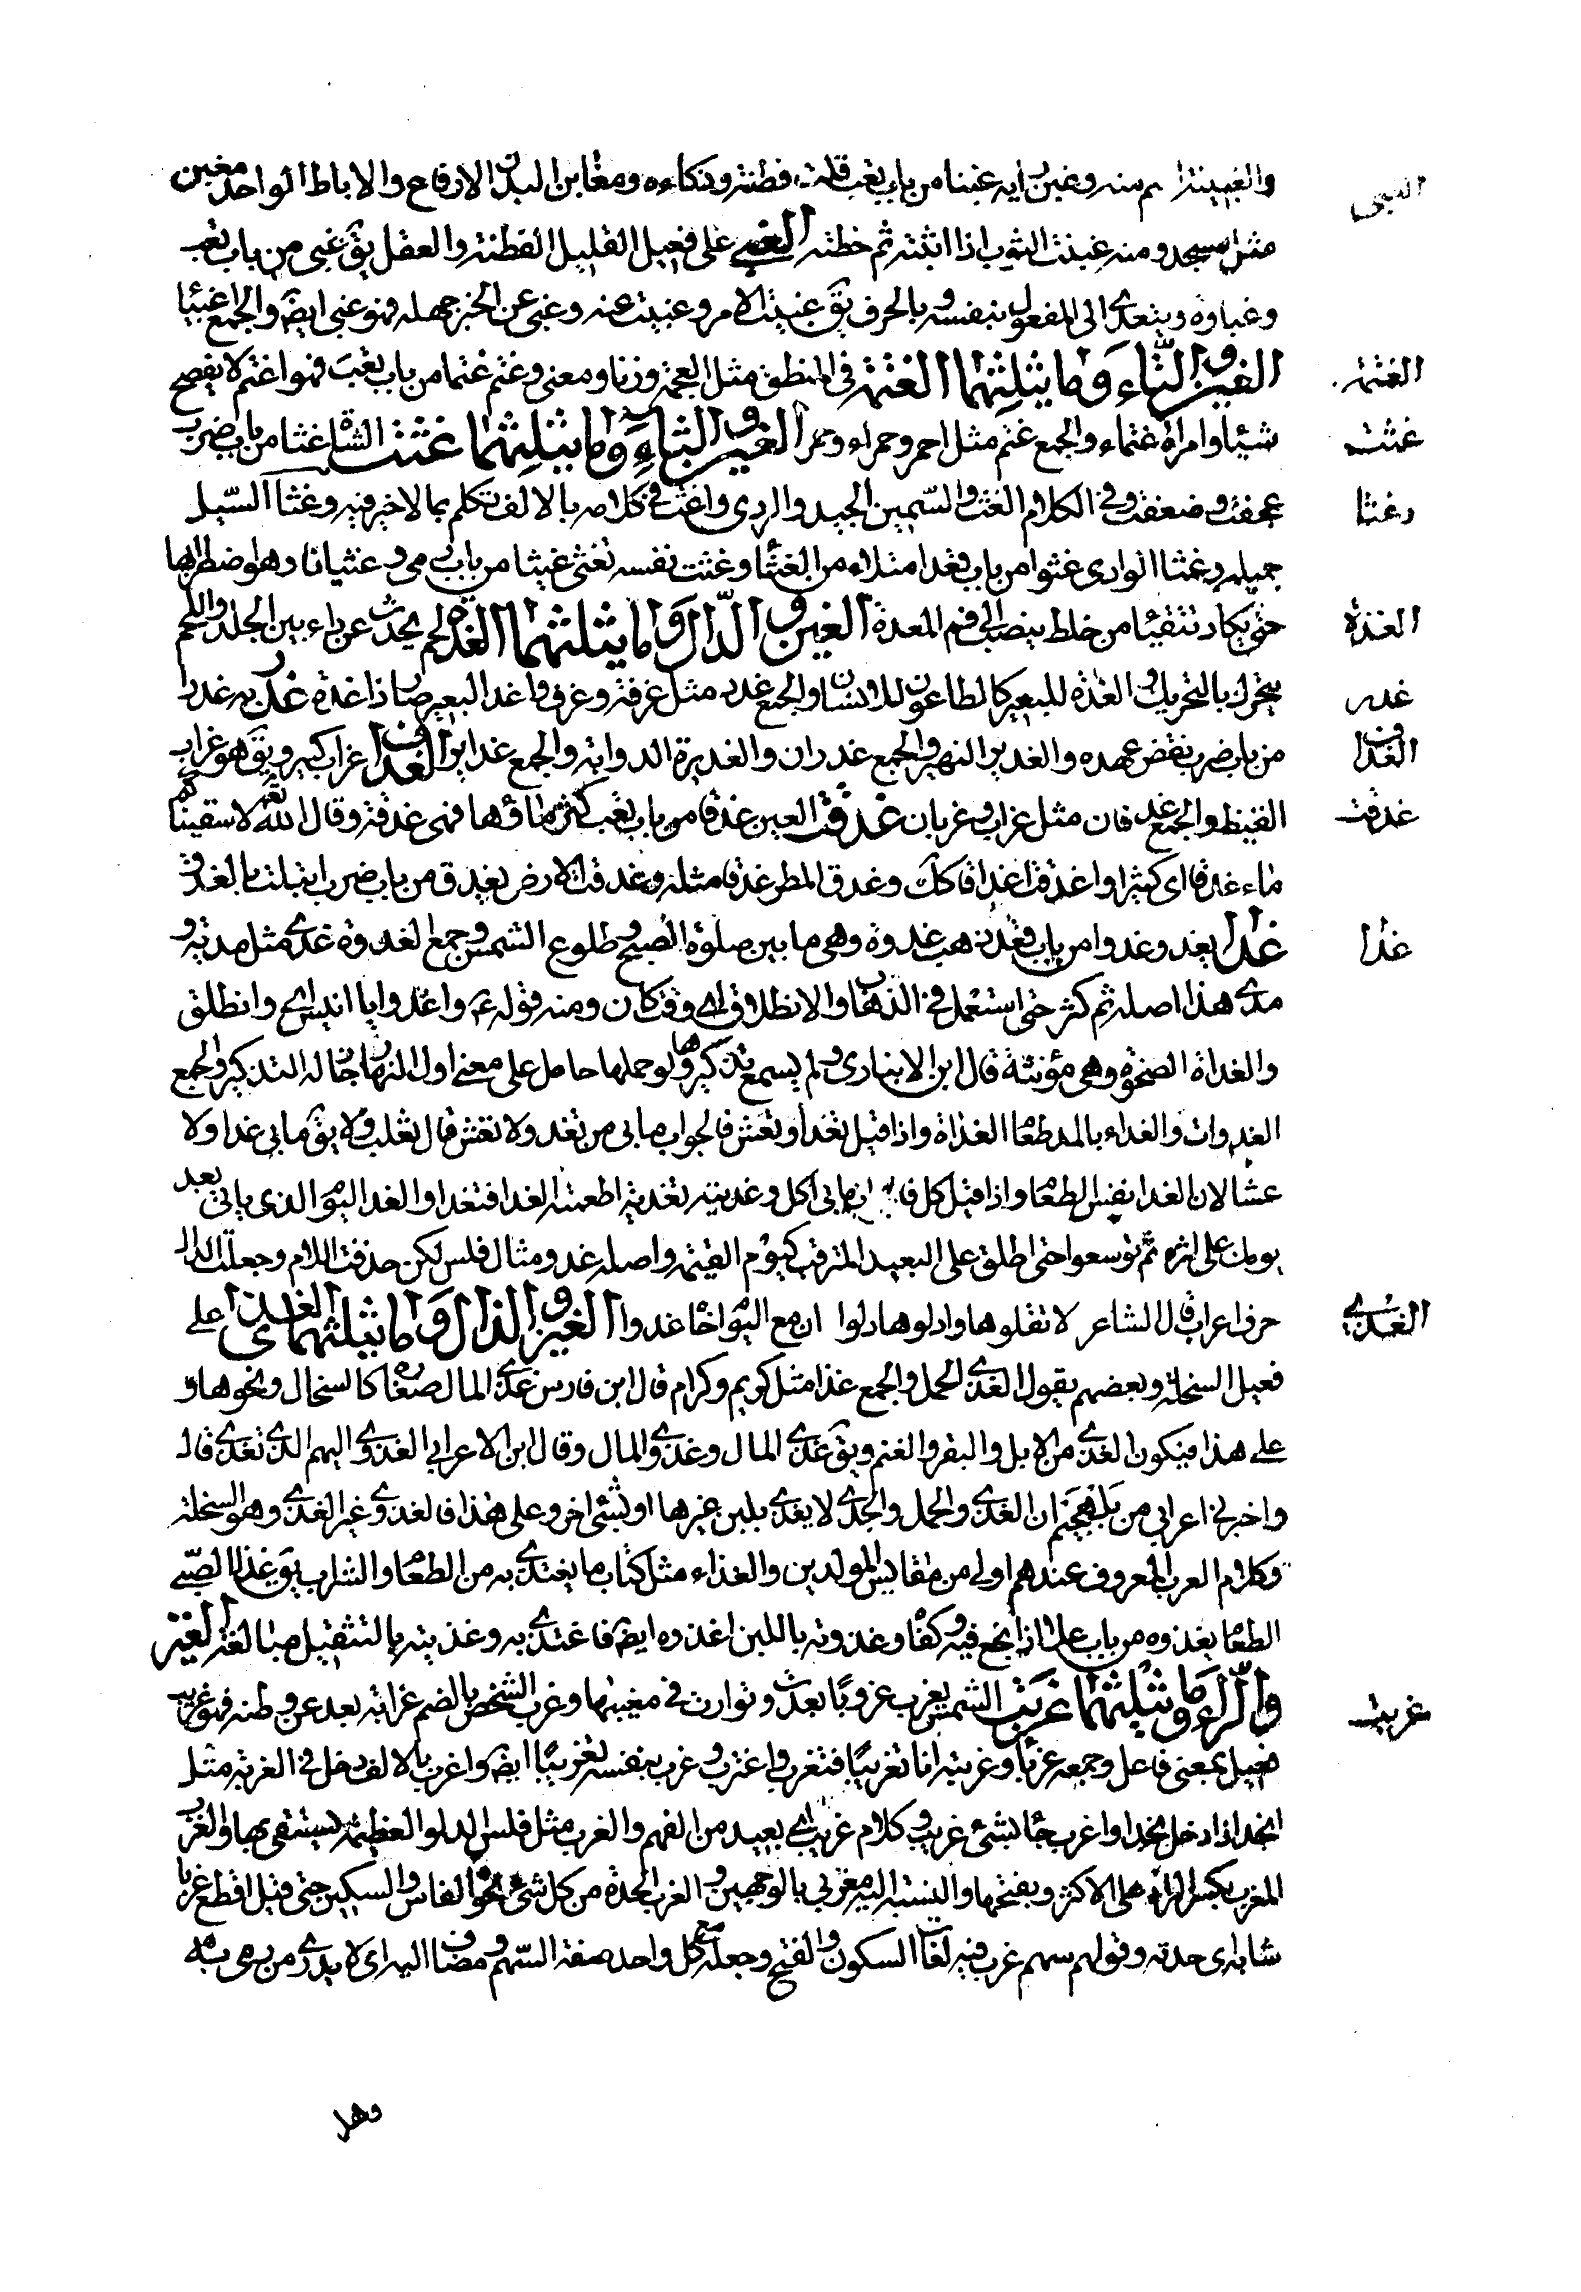 والغبينة اسم منه وغبن رأيه غبنا من باب تعب قلت فطنته وذكاءه ومغابن البدن الارفاع والاباط الواحد مغبن
الغبى
مثل مسجد ومنه غبنت الثوب اذا اثنيته ثم خطته الغبى على فعيل القليل الفطنة والعقل يق غبى من باب تعب
وغباوة ويتعدى الى المفعول بنفسه وبالحرف يق غبيت الامر وغبيت عنه وغبى عن الخبر جهله فهو غبى ايض والجمع اغبيا
الغتمة
الغين والتاء وما يثلثهما الغتمة فى المنطق مثل العجمة وزنا ومعنى وغتم غتما من باب تعب فهو اغتم لا يفصح
غثت
شيئا وامراة غتماء والجمع غتم مثل احمر وحمراء وحمر الغين والثاء وما يثلثهما غثت الشاة غثا من باب ضرب
وغثا
عجفت وضعفت وفى الكلام الغث والسمين الجيد والردى واغث فى كلامه بالالف تكلم بما لا خير فيه وغثا السيل
حميله وغثا الوادى غثوا من باب قعد امتلاء من الغثا وغثت نفسه تغثى غثيا من باب رمى وغثيانا وهو اضطرابها
الغدة
حتى تكاد تتقيا من خلط ينصب الى فم المعدة الغين والدال وما يثلثهما الغدة لحم يحدث عن داء بين الجلد واللحم
غدر
يتحرك بالتحريك والغدة للبعير كالطاعون للانسان والجمع غدد مثل غرفة وغرف واغد البعير صار ذا غدة غدر به غدرا
الغداف
من باب ضرب نقض عهده والغدير النهر والجمع غدران والغديرة الذوابة والجمع غداير الغداف غراب كبير ويق هو غراب
غدقت
القيظ والجمع غدفان مثل غراب وغربان غدقت العين غدقا من باب تعب كثر ماؤها فهى غدقة وقال الله تع لاسقيناهم
ماء غدقا اى كثيرا واغدقت اغداقا كك وغدق المطر غدقا مثله وغدقت الارض تغدق من باب ضرب ابتلت بالغدق
غدا
غدا يغدو غدوا من باب قعد ذهب غدوة وهى ما بين صلوة الصبح وطلوع الشمس وجمع الغدوة غدى مثل مدية و
مدى هذا اصله ثم كثر حتى استعمل فى الذهاب والانطلاق اى وقت كان ومنه قوله ع واغد يا انيس اى وانطلق
والغداة الضحوة وهى مؤنثة قال ابن الانبارى ولم يسمع تذكيرها ولو حملها حامل على معنى اول النهار جاز له التذكير والجمع
الغدوات والغداء بالمد طعام الغداة واذا قيل تغد او تعش فالجواب ما بى من تغد ولا تعش قال ثعلب ولا يق ما بى غدا ولا
عشا لان الغدا نفس الطعام واذا قيل كل ما بى اكل وغديته تغدية اطعمته الغدا فتغدا والغد اليوم الذى ياتى بعد
يومك على اثره ثم توسعوا حتى اطلق على البعيد المترقب كيوم القيمة واصله غدو مثال فلس لكن حذفت اللام وجعلت الدال
الغذى
حرف اعراب قال الشاعر لا تقلوها وادلوها دلوا ان مع اليوم اخاه غدوا الغين والذال وما يثلثهما الغذى على
فعيل السخلة وبعضهم يقول الغذى الحمل والجمع غذا مثل كريم وكرام قال ابن فارس غذى المال صغاره كالسخال ونحوها و
على هذا فيكون الغذى من الابل والبقر والغنم ويق غذى المال وغذوى المال وقال ابن الاعرابى الغذوى البهم الذى تغذى قال
واخبرنى اعرابى من بلهجيم ان الغذى والحمل والجدى لا يغذى بلبن غيرها او بشئ اخر وعلى هذا فالغذوى غير الغذى وهو السخلة
وكلام العرب المعروف عندهم اولى من مقاييس المولدين والغذاء مثل كتاب ما يغتذى به من الطعام والشراب يق غذا الصبى
الطعام يغذوه من باب علا اذا نجع فيه وكفاه وغذوته باللبن اغذوه ايض فاغتذى به وغذيته بالتثقيل مبالغة الغين
غربت
والراء وما يثلثهما غربت الشمس تغرب غروبا بعدت وتوارت فى مغيبها وغرب الشخص بالضم غرابة بعد عن وطنه فهو غريب
فعيل بمعنى فاعل وجمعه غربا وغربته انا تغريبا فتغرب واغترب وغرب بنفسه تغريبا ايض واغرب بالالف دخل فى الغربة مثل
انجد اذا دخل نجدا واغرب جا بشئ غريب وكلام غريب اى بعيد من الفهم والغرب مثل فلس الدلو العظيمة يستقى بها والغرب
المغرب بكسر الراء على الاكثر وبفتحها والنسبة اليه مغربى بالوجهين والغرب الحدة من كل شئ نحو الفاس والسكين حتى قيل اقطع غرب
لسانه اى حدته وقولهم سهم غرب فيه لغات السكون والفتح وجعله مع كل واحد صفة السهم ومضاف اليه اى لا يدرى من رمى به
وهل